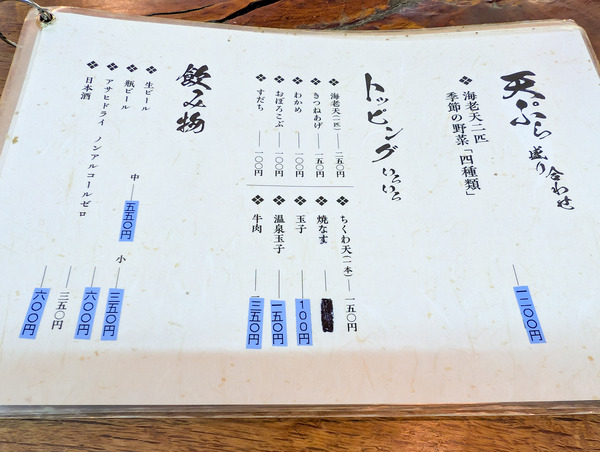 天ぷら盛り合わせ
海老天二匹
季節の野菜「四種類」 一二〇〇円
トッピングいろいろ
海老天(二匹) 二五〇円
きつねあげ 一五〇円
わかめ 一〇〇円
おぼろこぶ 一〇〇円
すだち 一〇〇円
ちくわ天(一本) 一五〇円
焼なす
玉子 100円
温泉玉子 一五〇円
牛肉 三五〇円
飲み物
生ビール 中 五五〇円 小 三五〇円
瓶ビール 六〇〇円
アサヒドライ ノンアルコールゼロ 三五〇円
日本酒 六〇〇円